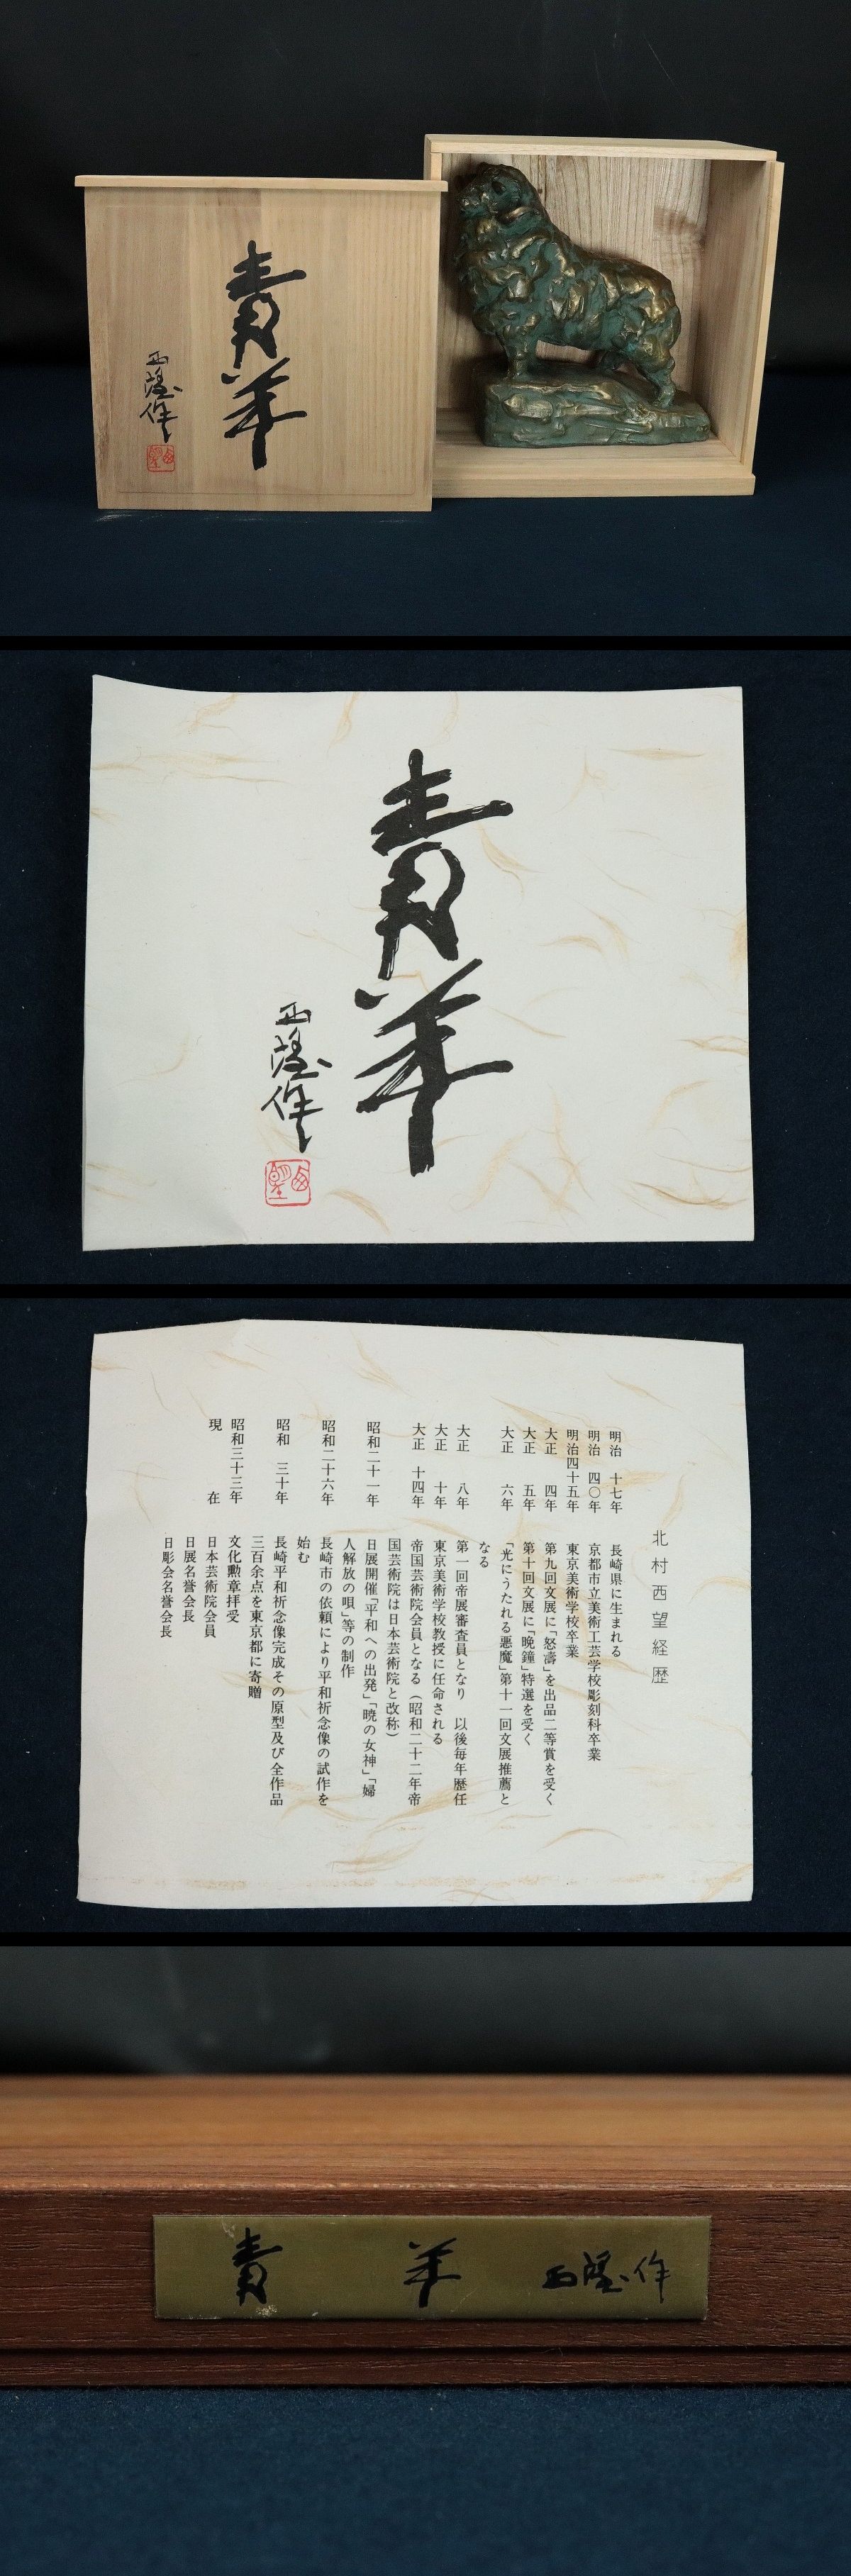 青羊
西望作
西望
青羊
西望作
西望
北村西望経歴
明治 十七年 長崎県に生まれる
明治 四〇年 京都市立美術工芸学校彫刻科卒業
明治四十五年 東京美術学校卒業
大正 四年 第九回文展に「怒濤」を出品二等賞を受く
大正 五年 第十回文展に「晩鐘」特選を受く
大正 六年 「光にうたれる悪魔」第十一回文展推薦と
なる
大正 八年 第一回帝展審査員となり 以後毎年歴任
大正 十年 東京美術学校教授に任命される
大正 十四年 帝国芸術院会員となる(昭和二十二年帝
国芸術院は日本芸術院と改称)
昭和二十一年 日展開催「平和への出発」「暁の女神」「婦
人解放の唄」等の制作
昭和二十六年 長崎市の依頼により平和祈念像の試作を
始む
昭和 三十年 長崎平和祈念像完成その原型及び全作品
三百余点を東京都に寄贈
昭和三十三年 文化勲章拝受
現在 日本芸術院会員
日展名誉会長
日彫会名誉会長
青 羊 西望作